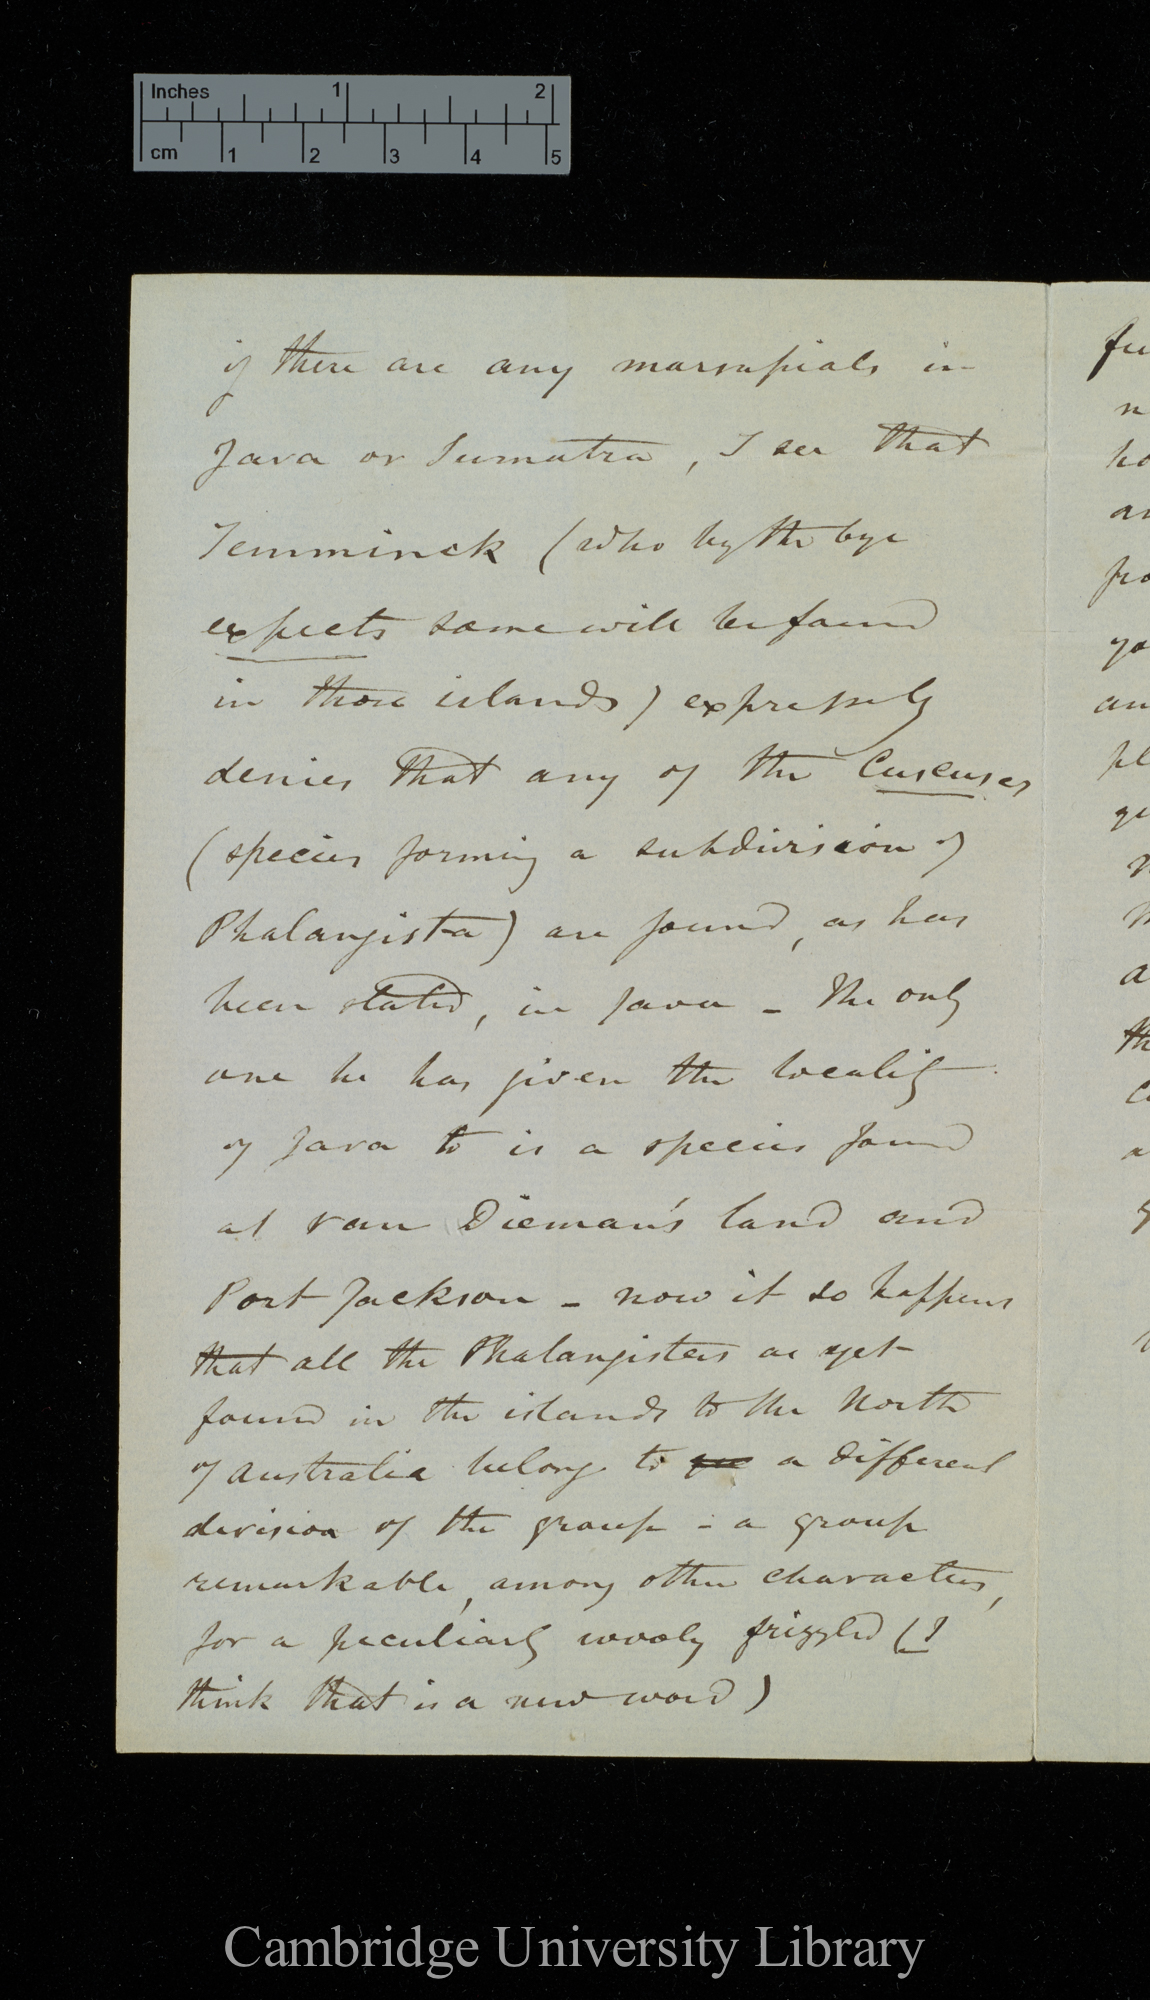 Inches 1 2
cm 1 2 3 4 5
if there are any marsupials in
Java or Sumatra, I see that
Temminck (who by the bye
expects some will be found
in those islands) expressly
denies that any of the Cuscuses
(species forming a subdivision of
Phalangista) are found, as has
been stated, in Java – The only
one he has given the locality
of Java to is a species found
at van Dieman's land and
Port Jackson – now it so happens
that all the Phalangisters as yet
found in the islands to the North
of Australia belong to a different
division of the group – a group
remarkable, among other characters,
for a peculiarly wooly frizzled (I
think that is a new word)
Cambridge University Library